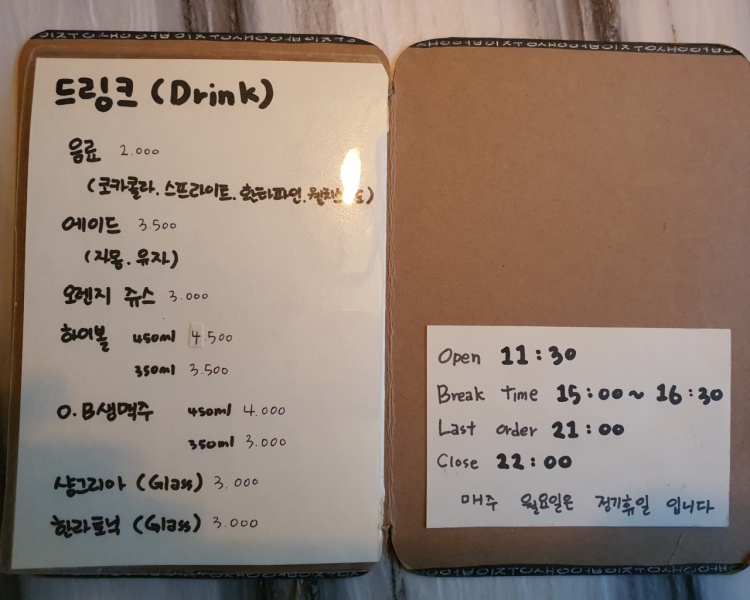 드링크 (Drink)
음료 2.000
(코카콜라. 스프라이트. 환타파인.
에이드 3.500
(자몽. 유자)
오렌지 쥬스 3.000
하이볼 450ml 4.500
350ml 3.500
O.B생맥주 450ml 4.000
350ml 3.000
샹그리아 (Glass) 3.000
한라토닉 (Glass) 3.000
Open 11:30
Break time 15:00~16:30
Last order 21:00
Close 22:00
매주 월요일은 정기휴일 입니다